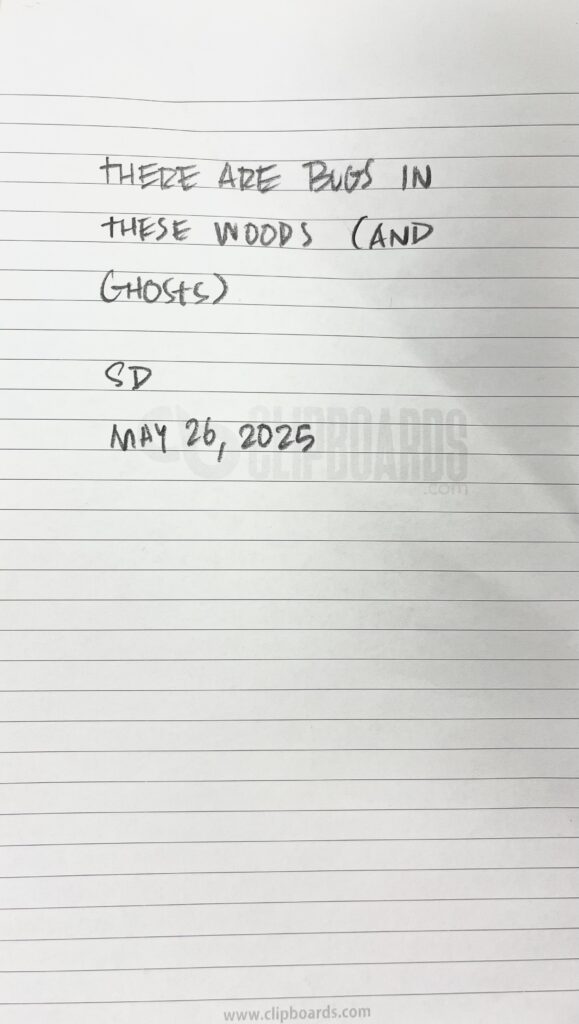 THERE ARE BUGS IN
THESE WOODS (AND
GHOSTS)
SD
MAY 26, 2025
CLIPBOARDS
.com
www.clipboards.com